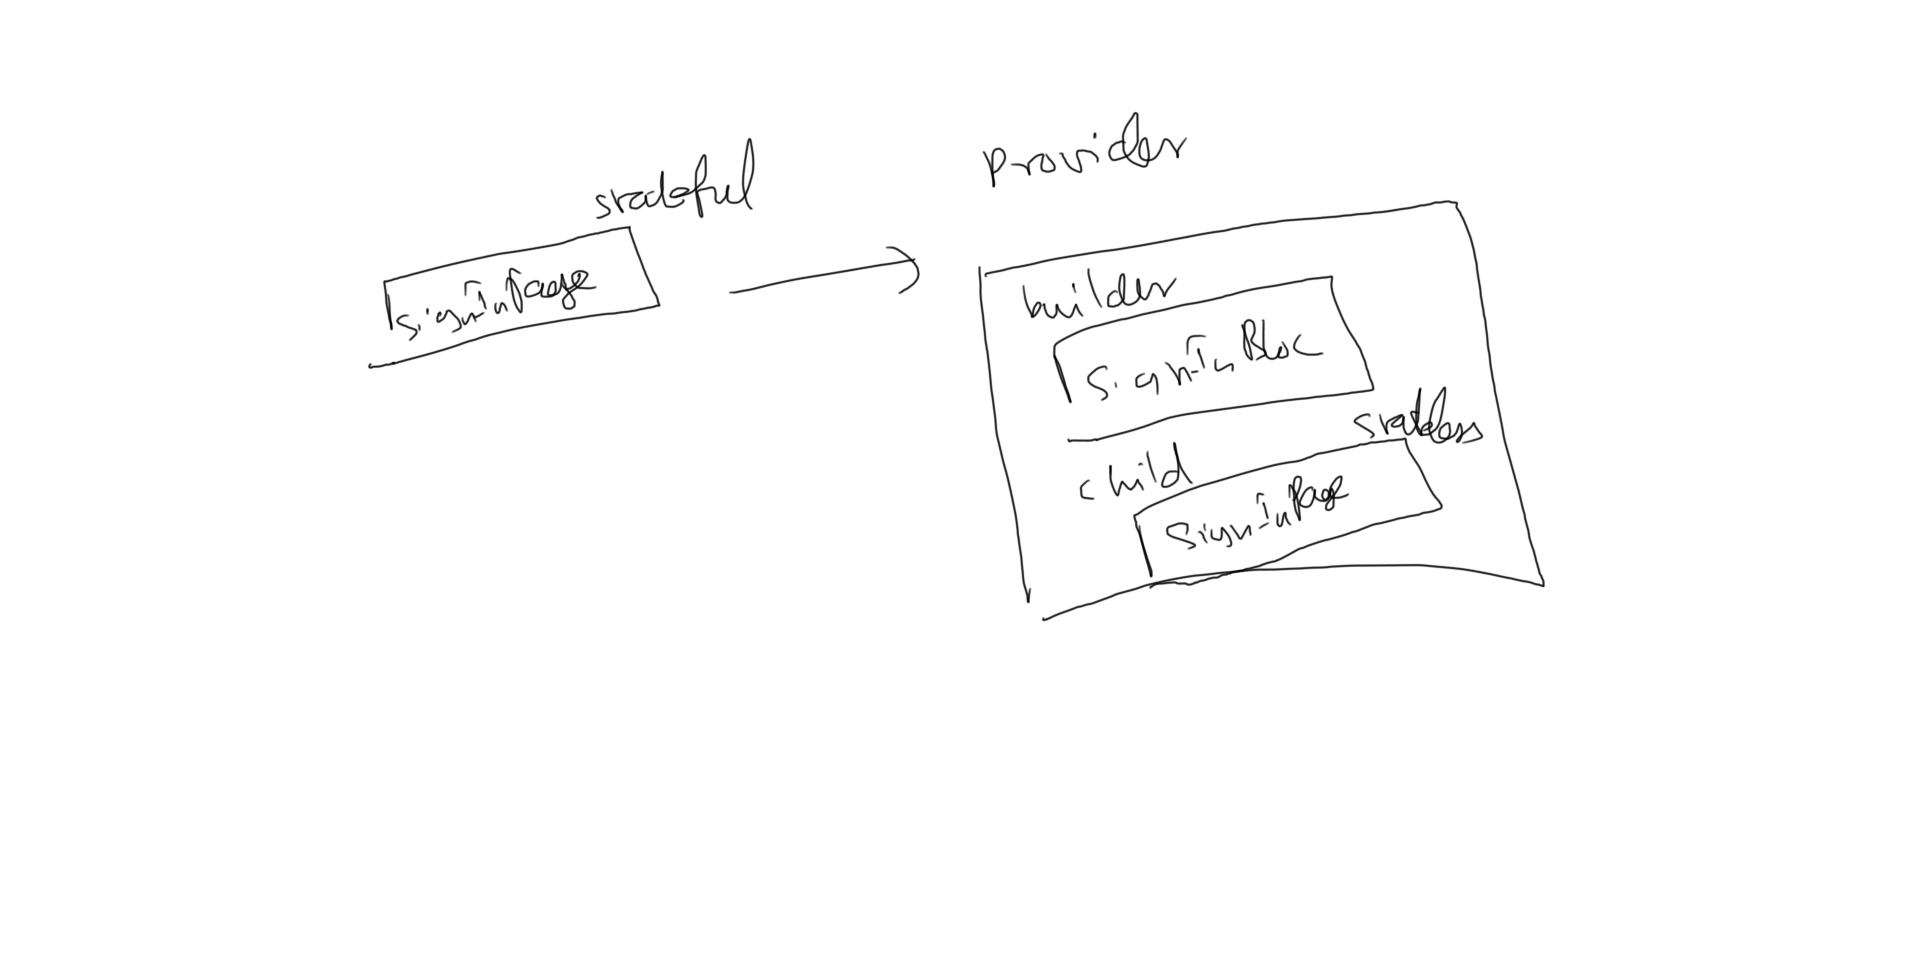 stateful
SignInPage
Provider
builder
SignInBloc
stateless
child
SignInPage